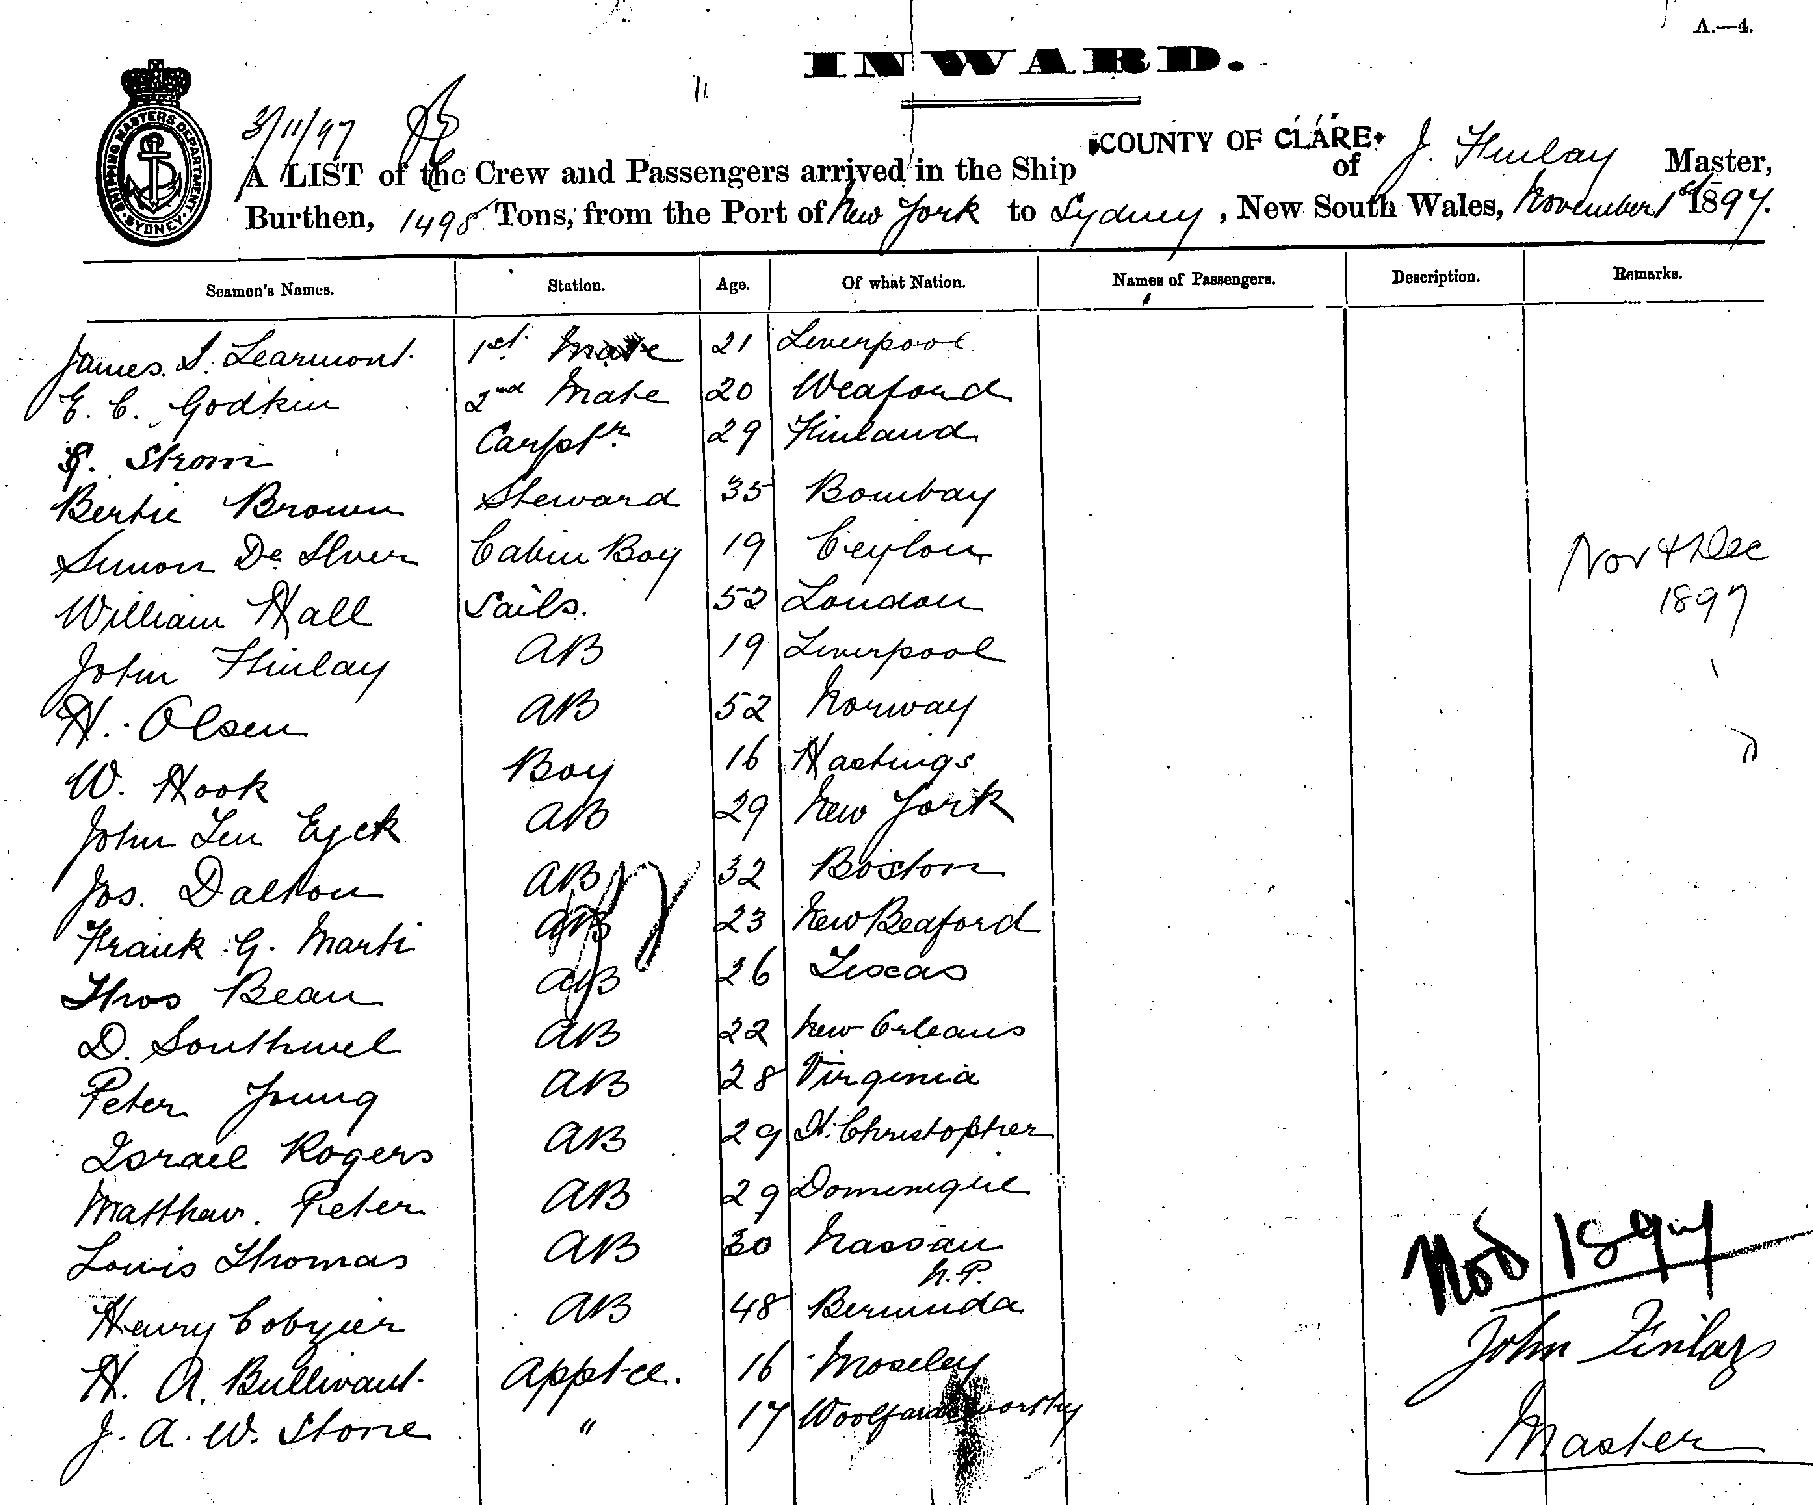 A.—4.
INWARD.
SHIPPING MASTERS DEPARTMENT SYDNEY
3/11/97
A LIST of the Crew and Passengers arrived in the Ship COUNTY OF CLARE of J. Finlay Master,
Burthen, 1498 Tons, from the Port of New York to Sydney, New South Wales, November 1st 1897.
Seamen's Names. Station. Age. Of what Nation. Names of Passengers. Description. Remarks.
James. S. Learmont. 1st Mate 21 Liverpool
E. C. Godkin 2nd Mate 20 Wexford
Strom Carptr 29 Finland
Bertie Brown Steward 35 Bombay
Simon De Silver Cabin Boy 19 Ceylon
Nov & Dec
1897
William Hall Sails. 52 London
John Finlay AB 19 Liverpool
H. Olsen AB 52 Norway
W. Hook Boy 16 Hastings
John Ten Eyck AB 29 New York
Jos. Dalton AB 32 Boston
Frank G. Marti AB 23 New Bedford
Thos Bean AB 26 Texas
D. Southwel AB 22 New Orleans
Peter Young AB 28 Virginia
Israel Rogers AB 29 St. Christopher
Matthew. Peter AB 29 Dominique
Louis Thomas AB 30 Nassau N.P.
Henry AB 48 Bermuda
H. A. Bullivant. Apptce. 16 Moseley
J. A. W. Stone " 17
Nov 1897
John Finlay
Master